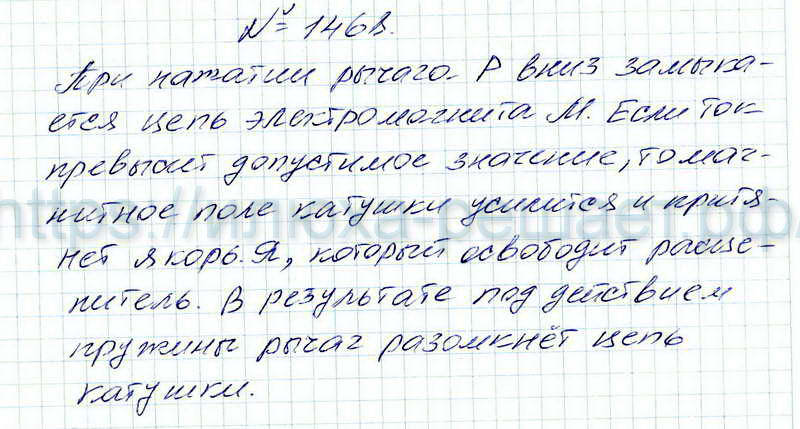 № 1468.
При нажатии рычаго Р вниз замыка-
ется цепь электромагнита М. Если ток
превысит допустимое значение, то маг-
нитное поле катушки усилится и притя-
нет якорь Я, который освободит расце-
питель. В результате под действием
пружины рычаг разомкнёт цепь
катушки.